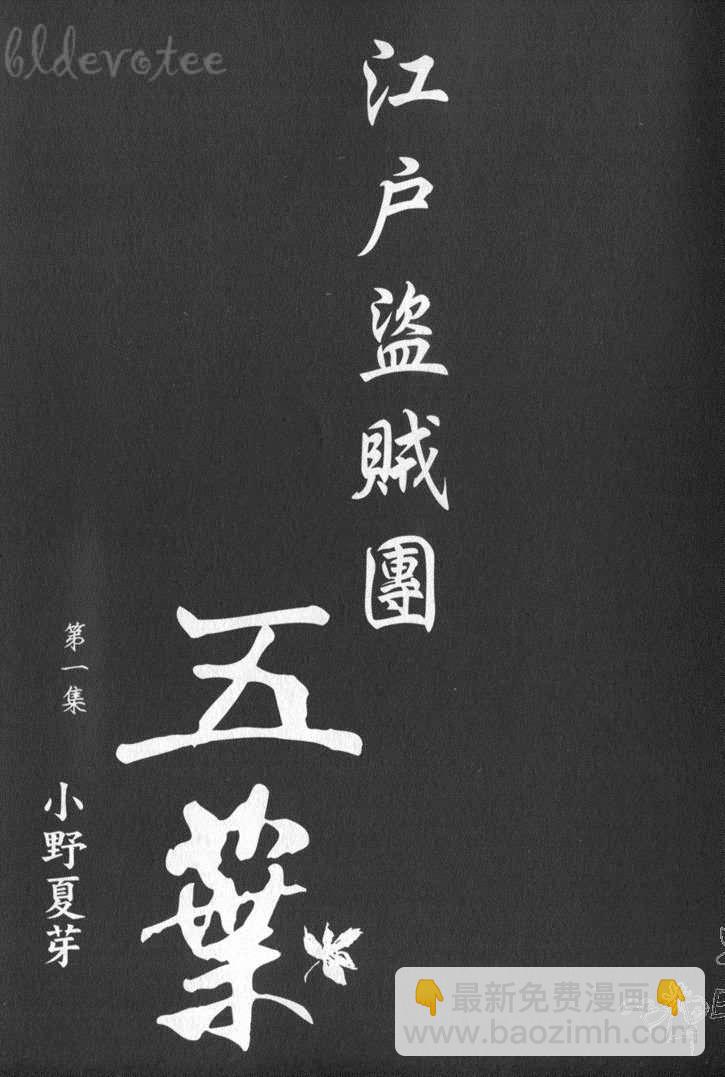 bldevotee
江户盜賊團
五葉
第一集
小野夏芽
👇最新免费漫画👇
www.baozimh.com